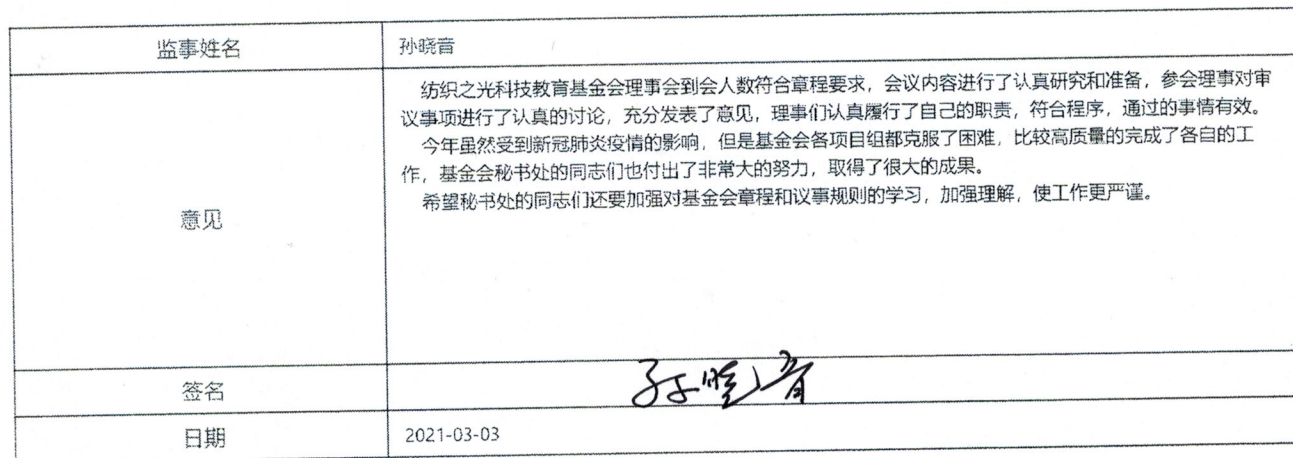 监事姓名
孙晓音
意见
纺织之光科技教育基金会理事会到会人数符合章程要求，会议内容进行了认真研究和准备，参会理事对审
议事项进行了认真的讨论，充分发表了意见，理事们认真履行了自己的职责，符合程序，通过的事情有效。
今年虽然受到新冠肺炎疫情的影响，但是基金会各项目组都克服了困难，比较高质量的完成了各自的工
作，基金会秘书处的同志们也付出了非常大的努力，取得了很大的成果。
希望秘书处的同志们还要加强对基金会章程和议事规则的学习，加强理解，使工作更严谨。
签名
孙晓音
日期
2021-03-03